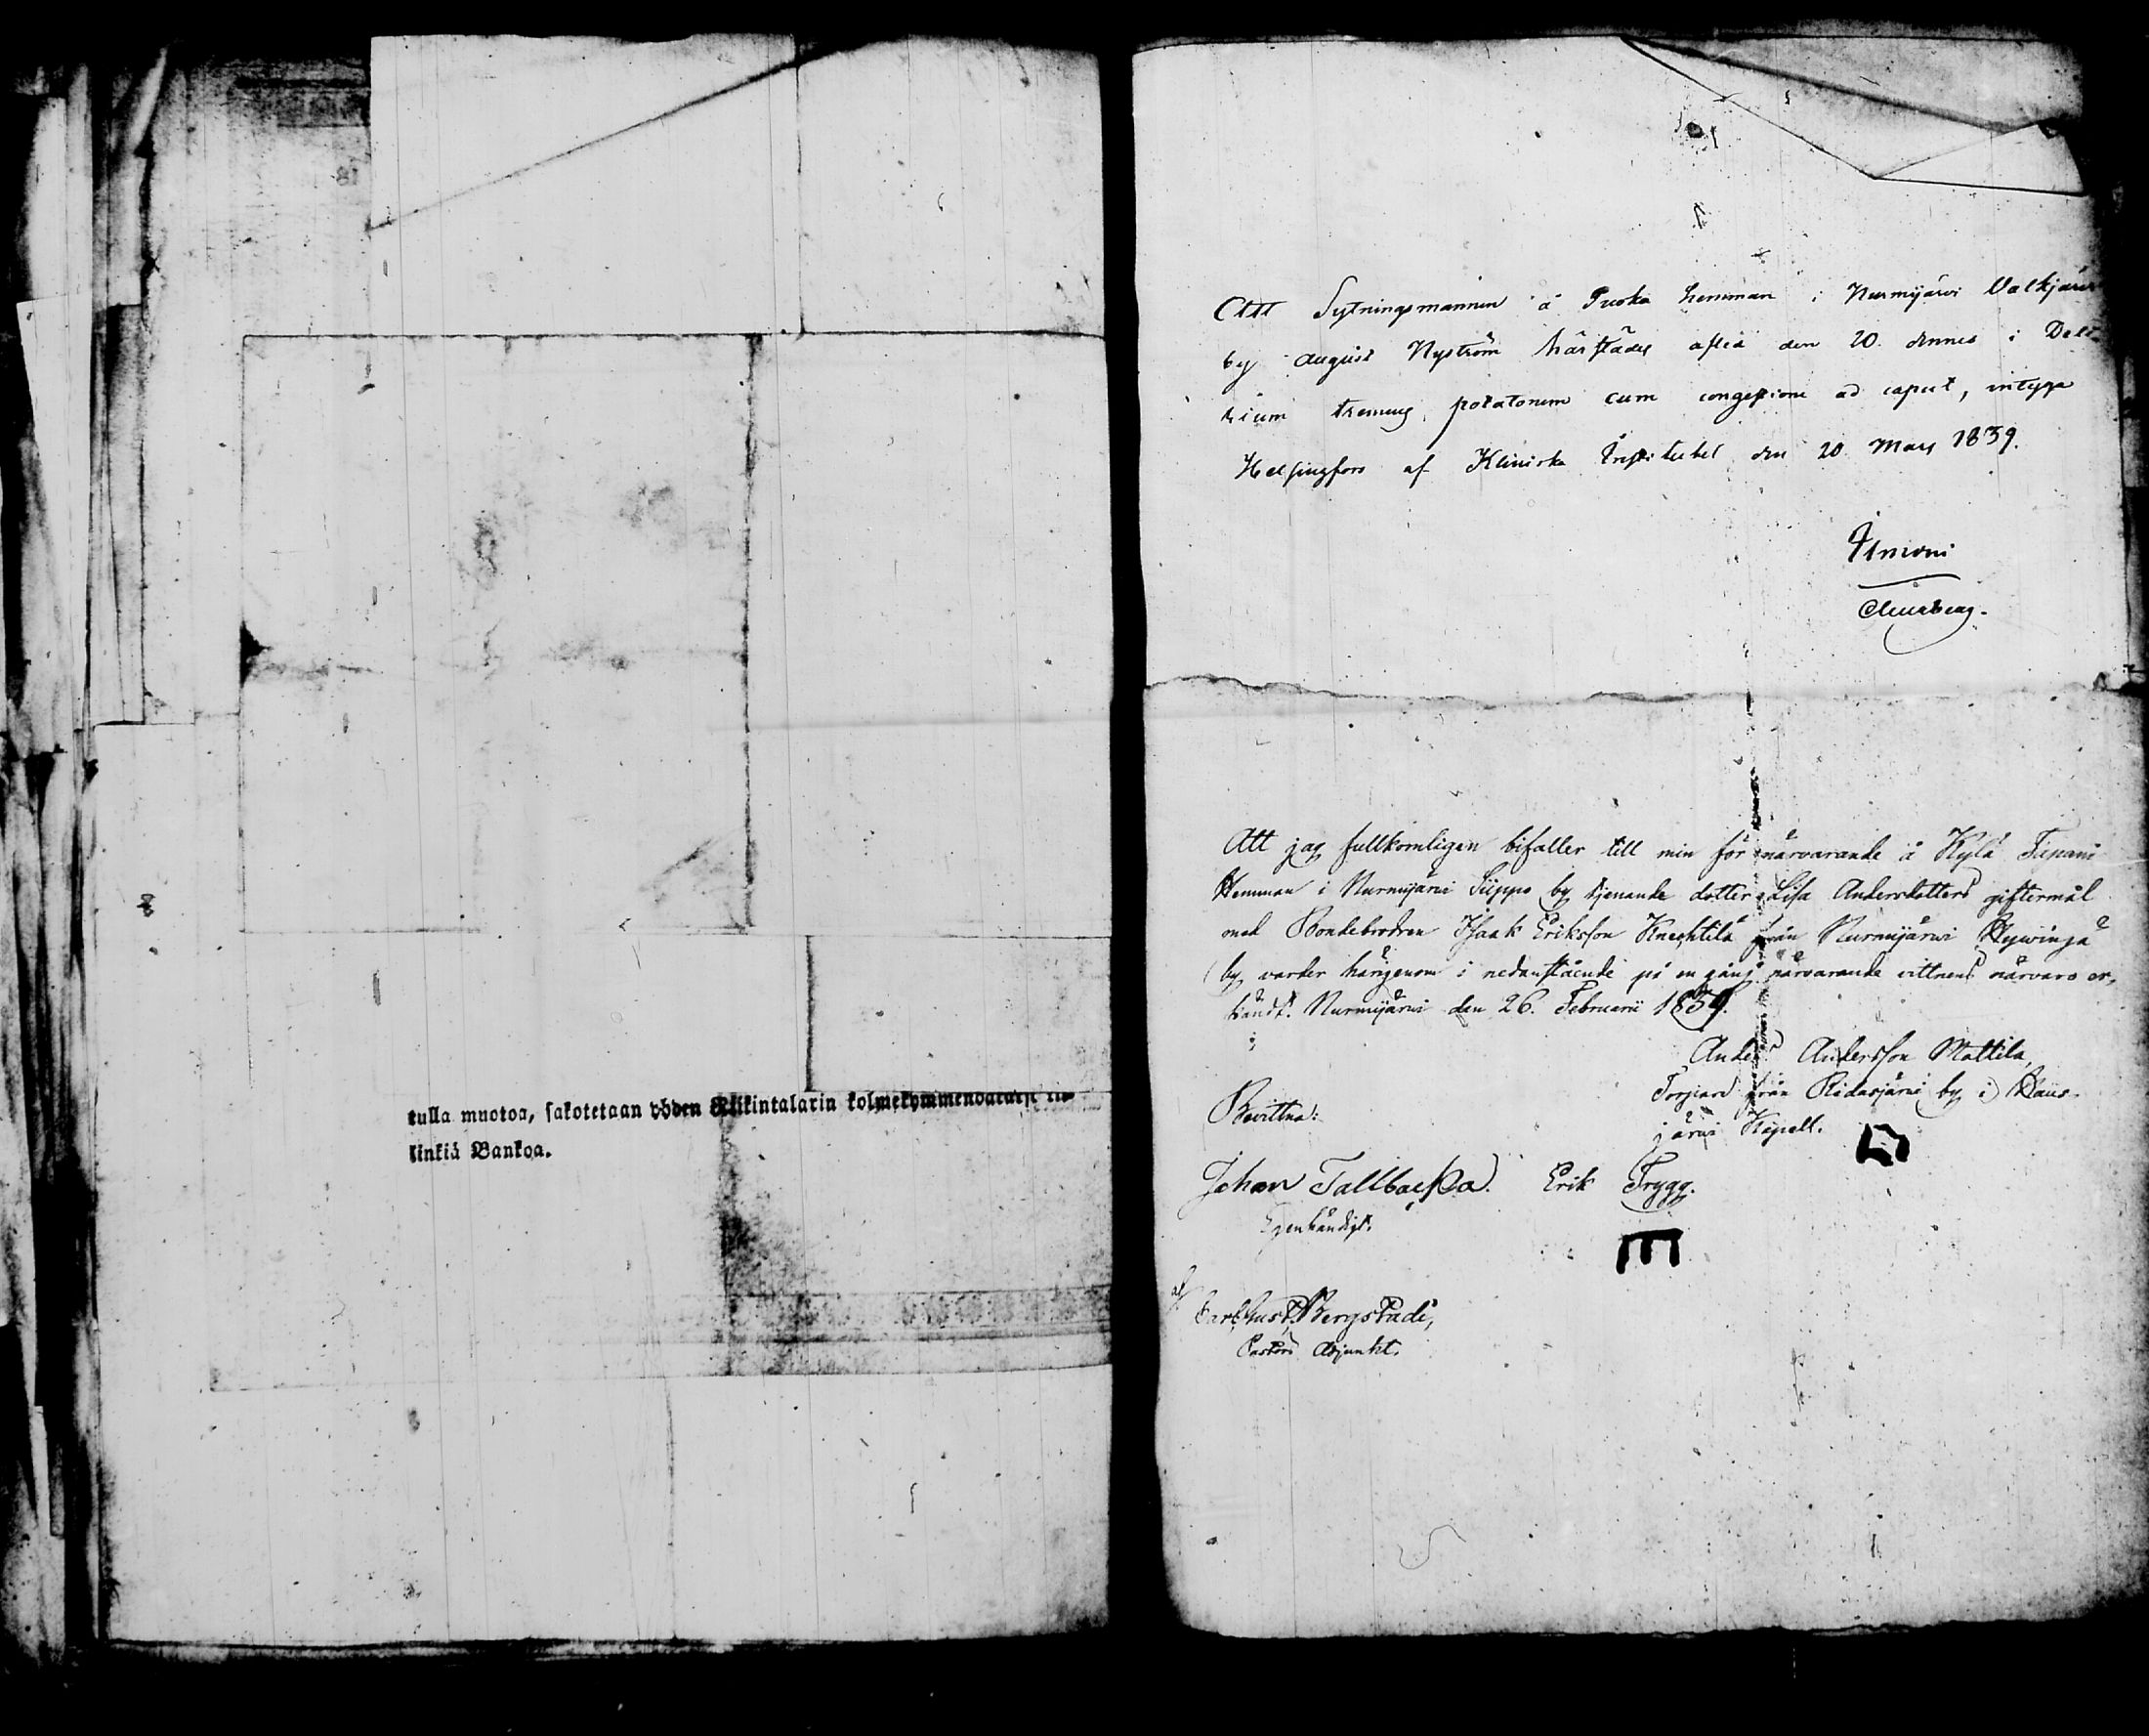 tulla muotoa, sakotetaan yhden Riikintalarin kolmekymmendä
linkiä Bankoa.
Att Sytningsmannen å Tuoka hemman i Nurmijärvi Valkjärvi
by August Nyström härstädes afled den 20. dennes i Deli
rium tremens potatorum cum congestione ad caput, intyga
Helsingfors af Kliniska Institutet den 20 Mars 1839.
Att jag fullkomligen bifaller till min för närvarande å Kylä Tapani
Hemman i Nurmijärvi Siippo by tjenande dotter Lisa Andersdotters giftermål
med Bondebrodren Isaak Eriksson Knechtilä från Nurmijärwi Hywingä
by, varder härigenom i nedanstående på en gång närvarande vittnens närvaro er-
kändt. Nurmijärvi den 26. Februarii 1839.
Anders Andersson Mattila,
Torpare från Ridasjärvi by i Haus-
järvi Kapell.
Bevittna:
Johan Tallbacka. Erik Trygg.
Egenhändigt.
af
Carl Gust. Bergstadi,
Pastors Adjunkt.